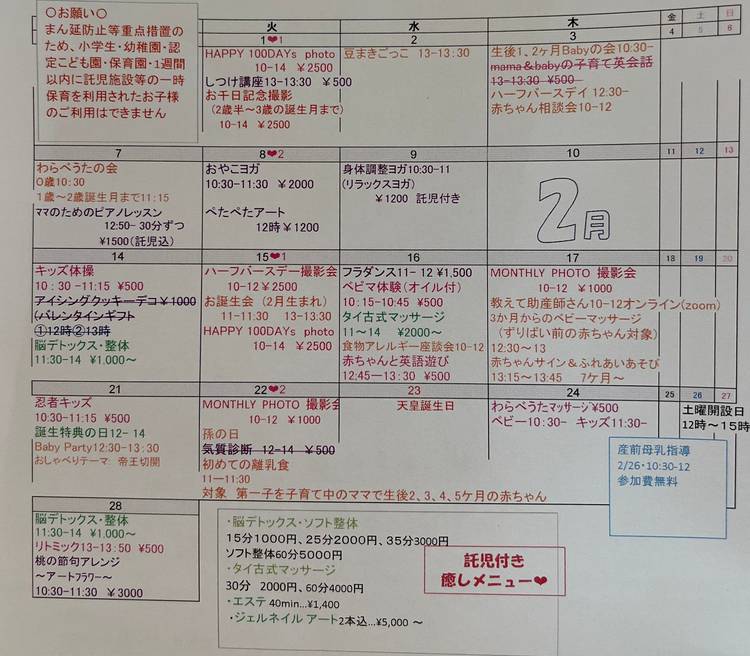 〇お願い〇
まん延防止等重点措置の
ため、小学生・幼稚園・認
定こども園・保育園・1週間
以内に託児施設等の一時
保育を利用されたお子様
のご利用はできません
火
水
木
金
土
日
1❤1
HAPPY 100DAYs photo
10-14 ¥2500
しつけ講座13-13:30 ¥500
お千日記念撮影
(2歳半～3歳の誕生月まで)
10-14 ¥2500
2
豆まきごっこ 13-13:30
3
生後1、2ケ月Babyの会10:30-
mama＆babyの子育て英会話
13-13:30 ¥500
ハーフバースデイ 12:30-
赤ちゃん相談会10-12
4
5
6
7
わらべうたの会
0歳10:30
1歳～2歳誕生月まで11:15
ママのためのピアノレッスン
12:50- 30分ずつ
¥1500(託児込)
8❤2
おやこヨガ
10:30-11:30 ¥2000
ぺたぺたアート
12時¥1200
9
身体調整ヨガ10:30-11
(リラックスヨガ)
¥1200 託児付き
10
2月
11
12
13
14
キッズ体操
10：30 -11:15 ¥500
アイシングクッキーデコ¥1000
(バレンタインギフト
①12時②13時
脳デトックス・整体
11:30-14 ¥1,000～
15❤1
ハーフバースデー撮影会
10-12¥2500
お誕生会（2月生まれ）
11-11:30 13-13:30
HAPPY 100DAYs photo
10-14 ¥2500
16
フラダンス11- 12 ¥1,500
ベビマ体験(オイル付)
10：15-10:45 ¥500
タイ古式マッサージ
11～14 ¥2000～
食物アレルギー座談会10-12
赤ちゃんと英語遊び
12:45―13:30 ¥500
17
MONTHLY PHOTO 撮影会
10-12 ¥1000
教えて助産師さん10-12オンライン(zoom)
3か月からのベビーマッサージ
（ずりばい前の赤ちゃん対象）
12:30～13
赤ちゃんサイン＆ふれあいあそび
13:15～13:45 7ケ月～
18
19
20
21
忍者キッズ
10:30-11:15 ¥500
誕生特典の日12- 14
Baby Party12:30-13:30
おしゃべりテーマ: 帝王切開
22❤2
MONTHLY PHOTO 撮影会
10-12 ¥1000
孫の日
気質診断 12-14 ¥500
初めての離乳食
11―11:30
対象 第一子を子育て中のママで生後2、3、4、5ケ月の赤ちゃん
23
天皇誕生日
24
わらべうたマッサージ¥500
ベビー10:30- キッズ11:30-
25
26
27
土曜開設日
12時～15時
産前母乳指導
2/26・10:30-12
参加費無料
28
脳デトックス・整体
11:30-14 ¥1,000～
リトミック13-13:50 ¥500
桃の節句アレンジ
～アートフラワー～
10:30-11:30 ¥3000
・脳デトックス・ソフト整体
15分1000円、25分2000円、35分3000円
ソフト整体60分5000円
・タイ古式マッサージ
30分 2000円、60分4000円
・エステ 40min…¥1,400
・ジェルネイル アート2本込…¥5,000 ～
託児付き
癒しメニュー❤